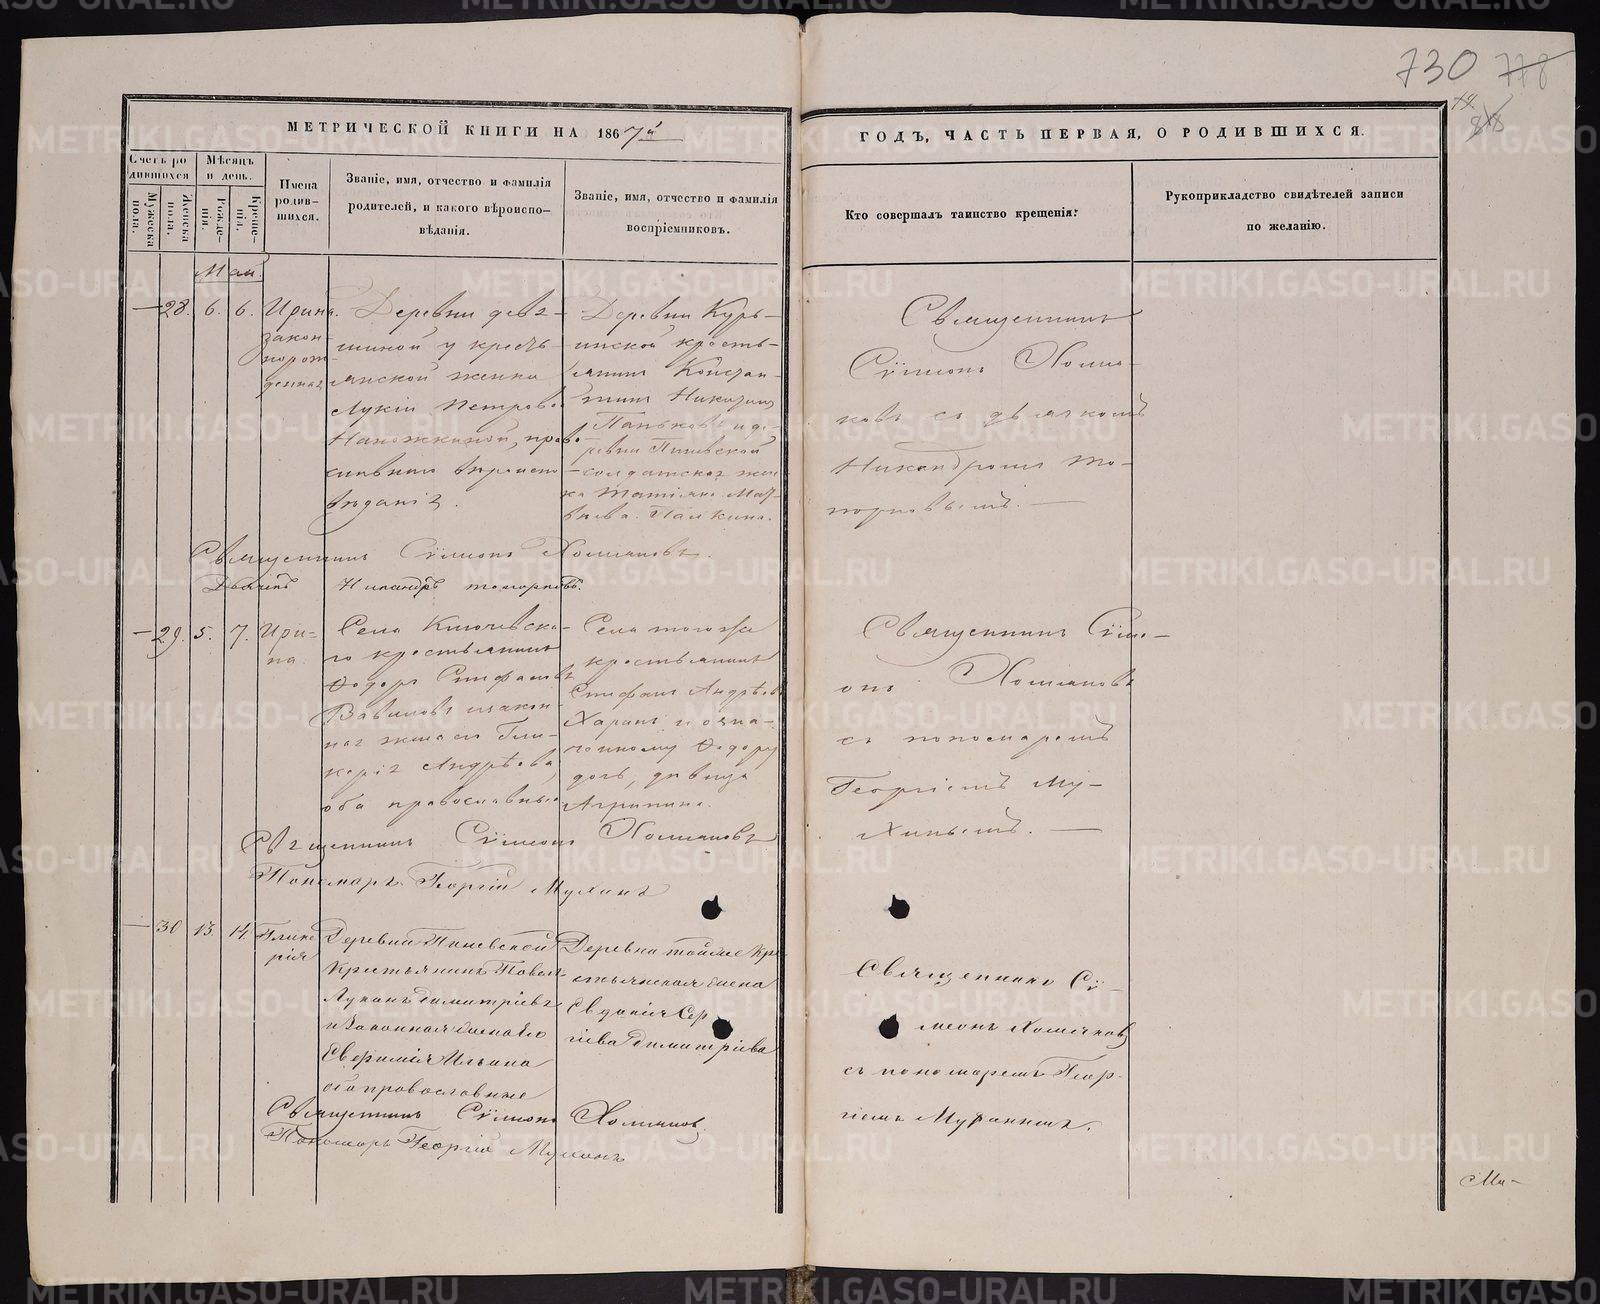 730 778
МЕТРИЧЕСКОЙ КНИГИ НА 1867й
ГОДЪ, ЧАСТЬ ПЕРВАЯ, О РОДИВШИХСЯ.
Счетъ родившихся
Мѣсяцъ и день.
Мужеска пола.
Женска пола.
Рожденія.
Крещенія.
Имена родившихся.
Званіе, имя, отчество и фамилія
родителей, и какого вѣроиспо-
вѣданія.
Званіе, имя, отчество и фамилія
воспріемниковъ.
Кто совершалъ таинство крещенія?
Рукоприкладство свидѣтелей записи
по желанію.
Май.
— 28. 6. 6.
Ирина.
закон-
норож-
денная
Деревни
у кресть-
янской женки
Лукіи Петровой
право
славнаго вѣроиспо
вѣданія.
Деревни Курь-
инской кресть-
янинъ Констан-
тинъ
Паньковъ и де-
ревни
солдатская жен-
ка Татіяна Мат-
вѣева
Священникъ
Сѵмеонъ Холма-
ковъ съ дьячкомъ
Никандромъ То-
порковымъ. —
Священникъ Сѵмеонъ Холмаковъ.
Дьячекъ Никандръ Топорковъ.
— 29. 5. 7.
Ири-
на.
Села Ключевска-
го крестьянинъ
Ѳедоръ Стефановъ
Вавиловъ и закон-
ная жена его Гли-
керія Андрѣева,
оба православные
Села тогоже
крестьянинъ
Стефанъ Андрѣевъ
Харинъ и озна-
ченному Ѳедору
дочь, дѣвица
Агрипина.
Священникъ Сѵме-
онъ Холмаковъ
съ пономаремъ
Георгіемъ Му-
хинымъ. —
Священникъ Сѵмеонъ Холмаковъ
Пономарь Георгій Мухинъ
— 30 13. 14.
Глике
рія
Деревни
Крестьянинъ Павелъ
Димитріевъ
и Законная жена его
Евфимія Ильина
оба православные
Деревни тойже Кре
стьянская жена
Евдокія Сер
гіева Димитріева
Священникъ Сѵ-
меонъ Холмаковъ
съ пономаремъ Геор-
гіемъ Мухинымъ.
Священникъ Сѵмеонъ Холмаковъ.
Пономарь Георгій Мухинъ
Ми-
METRIKI.GASO-URAL.RU